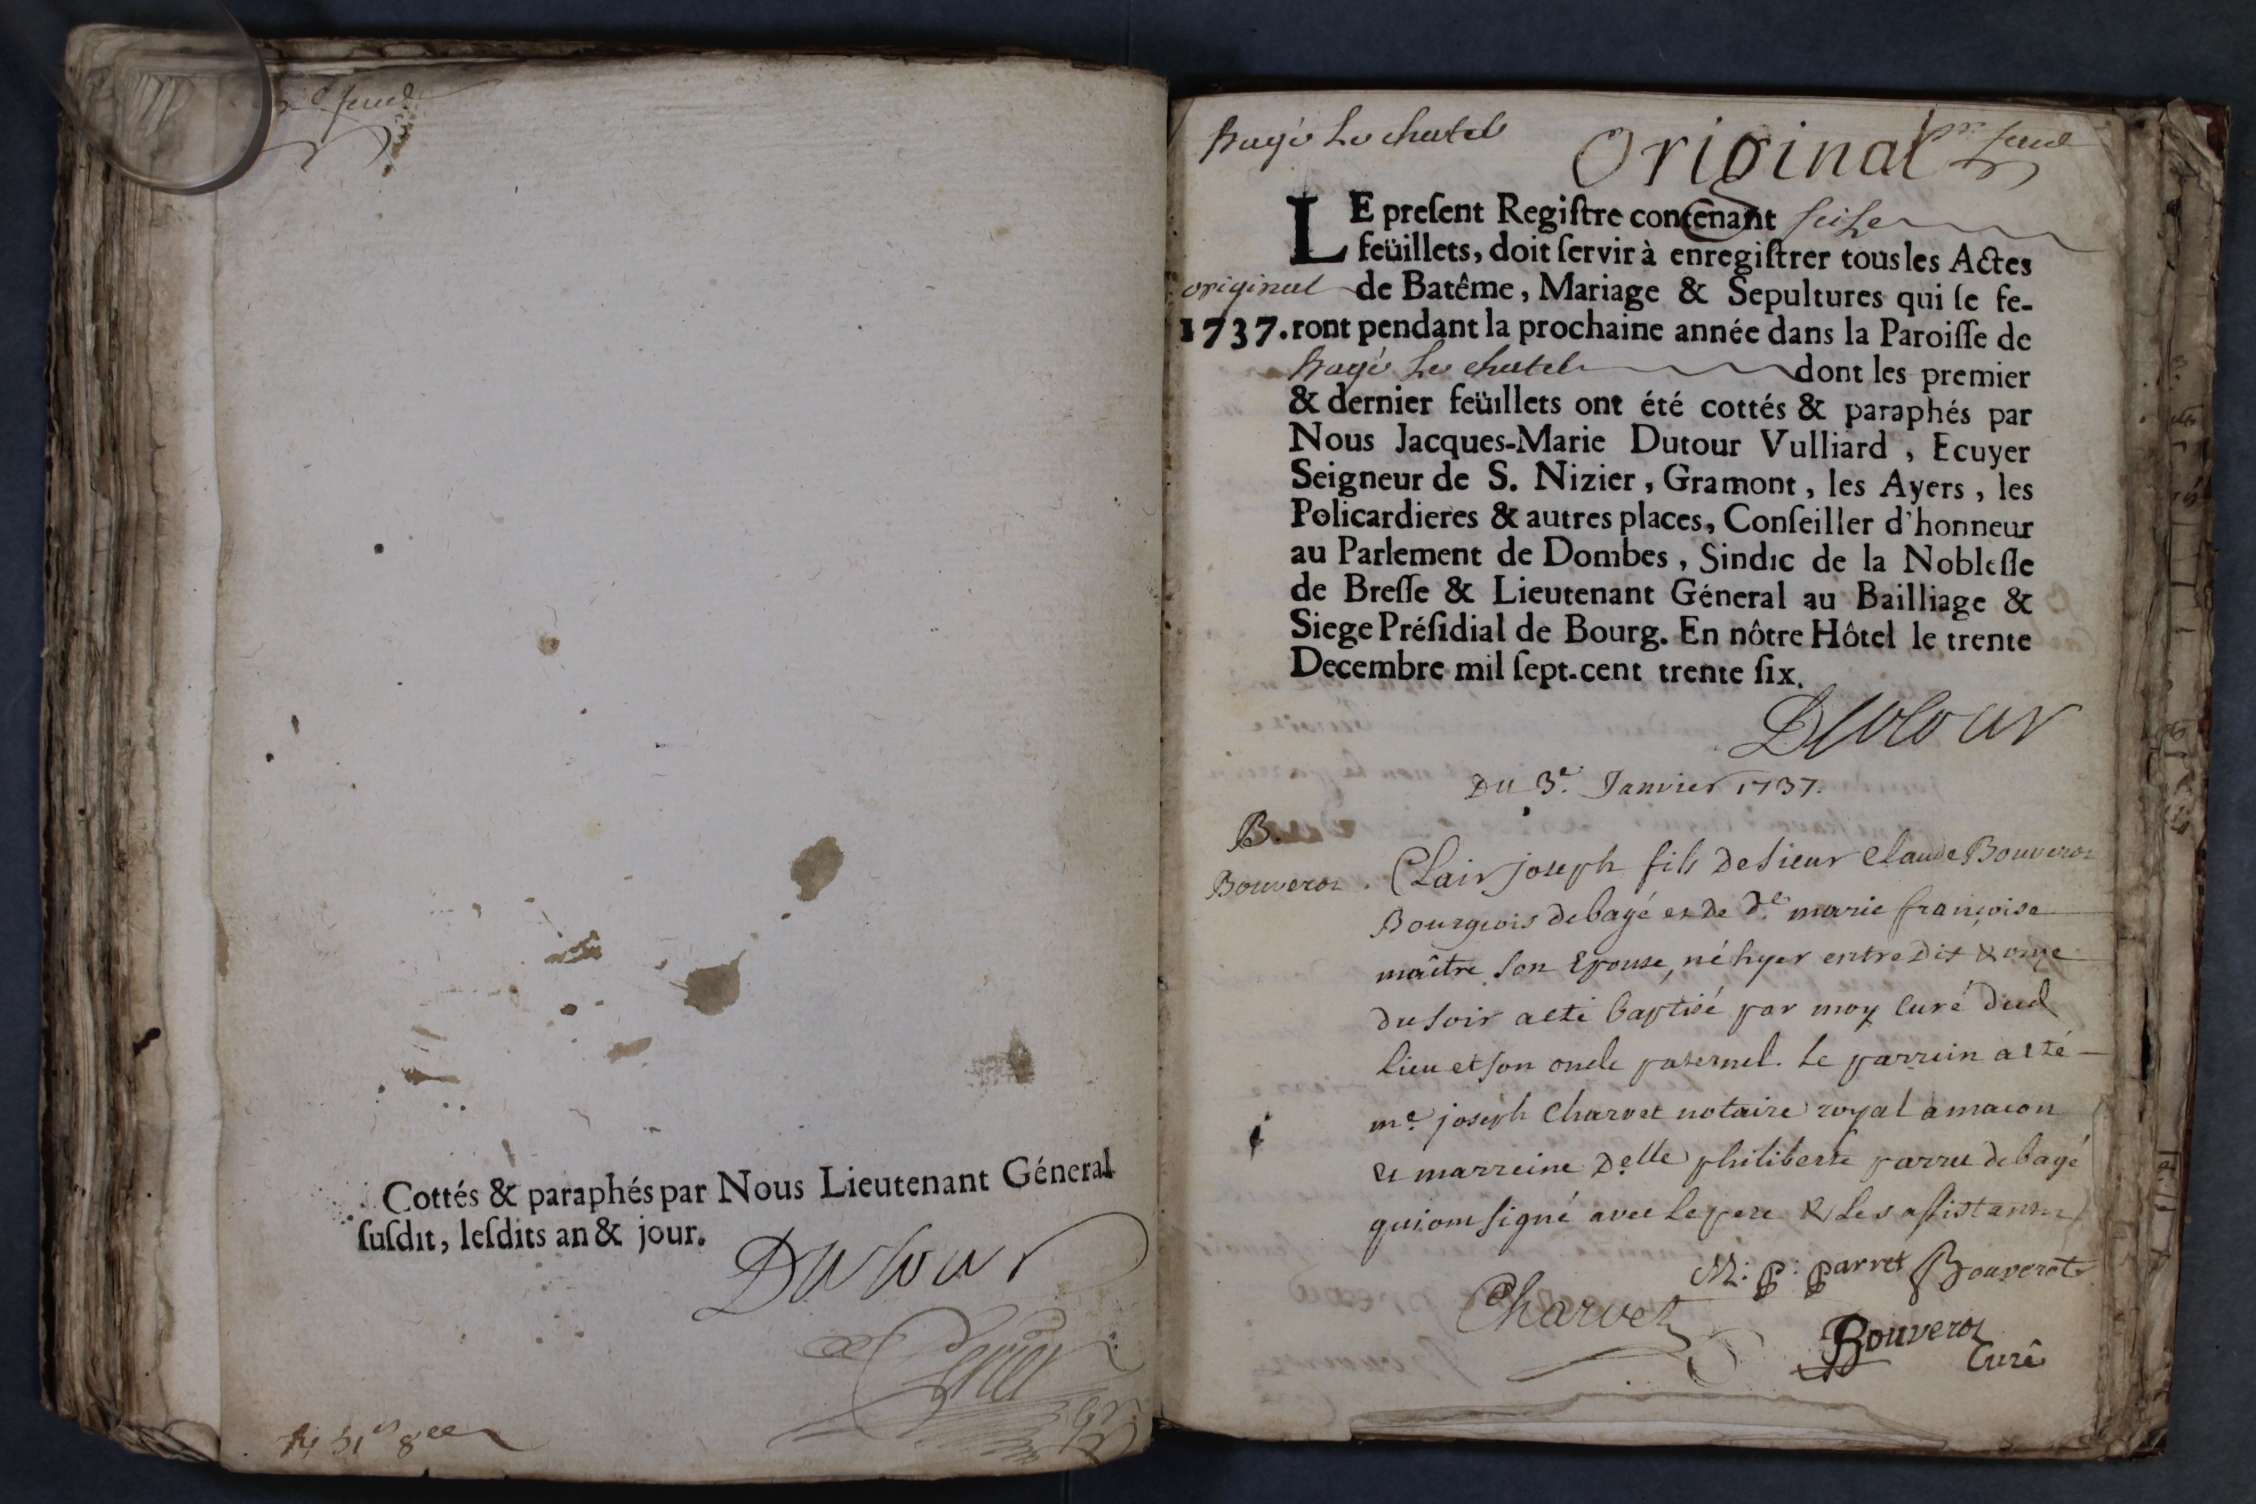 feuil
Cottés & paraphés par Nous Lieutenant Géneral
susdit, lesdits an & jour.
Dutour
Bagé Le chatel
Original
pr. feuil
LE present Registre contenant seize
feüillets, doit servir à enregistrer tous les Actes
original de Batême, Mariage & Sepultures qui se fe-
1737. ront pendant la prochaine année dans la Paroisse de
Bagé Le chatel dont les premier
& dernier feüillets ont été cottés & paraphés par
Nous Jacques-Marie Dutour Vulliard, Ecuyer
Seigneur de S. Nizier, Gramont, les Ayers, les
Policardieres & autres places, Conseiller d'honneur
au Parlement de Dombes, Sindic de la Noblesse
de Bresse & Lieutenant Géneral au Bailliage &
Siege Présidial de Bourg. En nôtre Hôtel le trente
Decembre mil sept-cent trente six.
Dutour
Du 3e. Janvier 1737.
B.
Bouverot.
Clair joseph fils de sieur Claude Bouverot
Bourgeois de bagé et de de. marie françoise
maître son Epouse, né hyer entre dix & onze
du soir a eté baptisé par moy curé dud
lieu et son oncle paternel. Le parrein a eté
me. joseph Charvet notaire royal a macon
et marreine Delle philiberte parret de bagé
qui ont signé avec le pere & les assistants
M: P: Parret Bouverot
Charvet
Bouverot
Curé